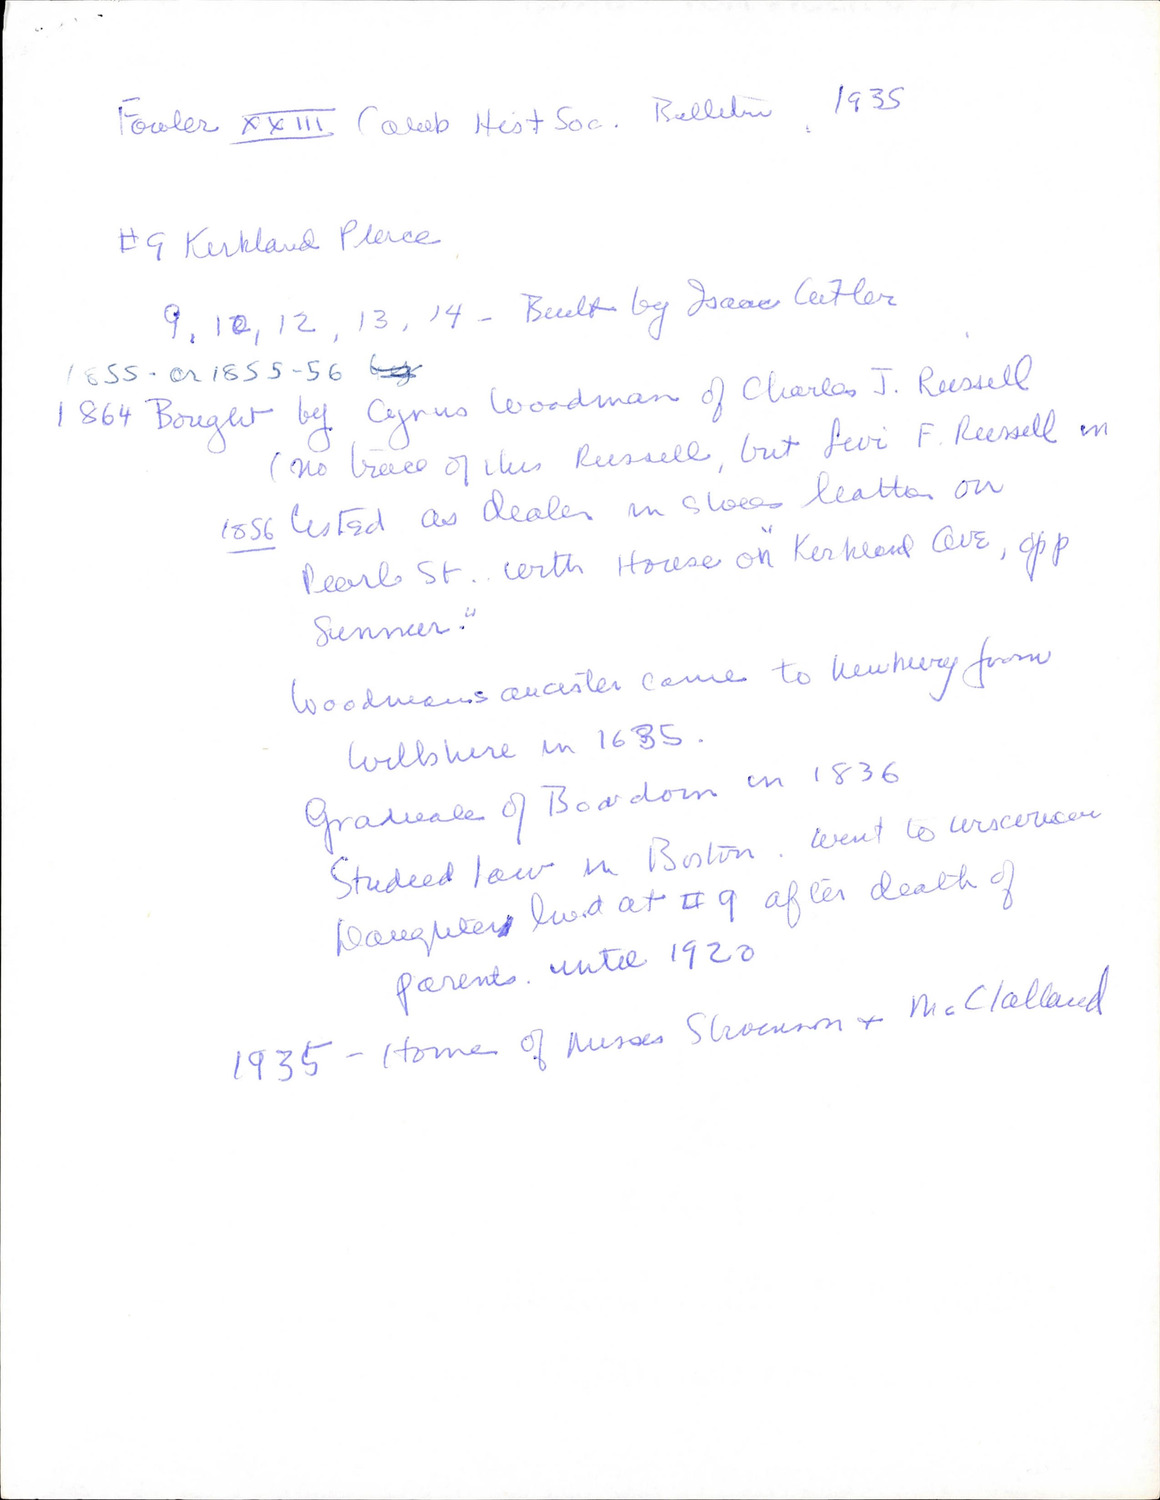 Fowler XXIII Camb Hist Soc. Bulletin, 1935
#9 Kirkland Place
9, 10, 12, 13, 14 - Built by Isaac Cutler
1855 - or 1855-56 by
1864 Bought by Cyrus Woodman of Charles J. Russell
(no trace of this Russell, but Levi F. Russell in
1856 listed as dealer in shoes leather on
Pearl St. with House on "Kirkland Ave, opp
Sumner."
Woodman's ancestor came to Newbury from
Wiltshire in 1635.
Graduate of Bowdoin in 1836
Studied law in Boston. went to Wisconsin
Daughters lived at #9 after death of
parents. until 1920
1935 - Home of Misses Stevenson + McClalland